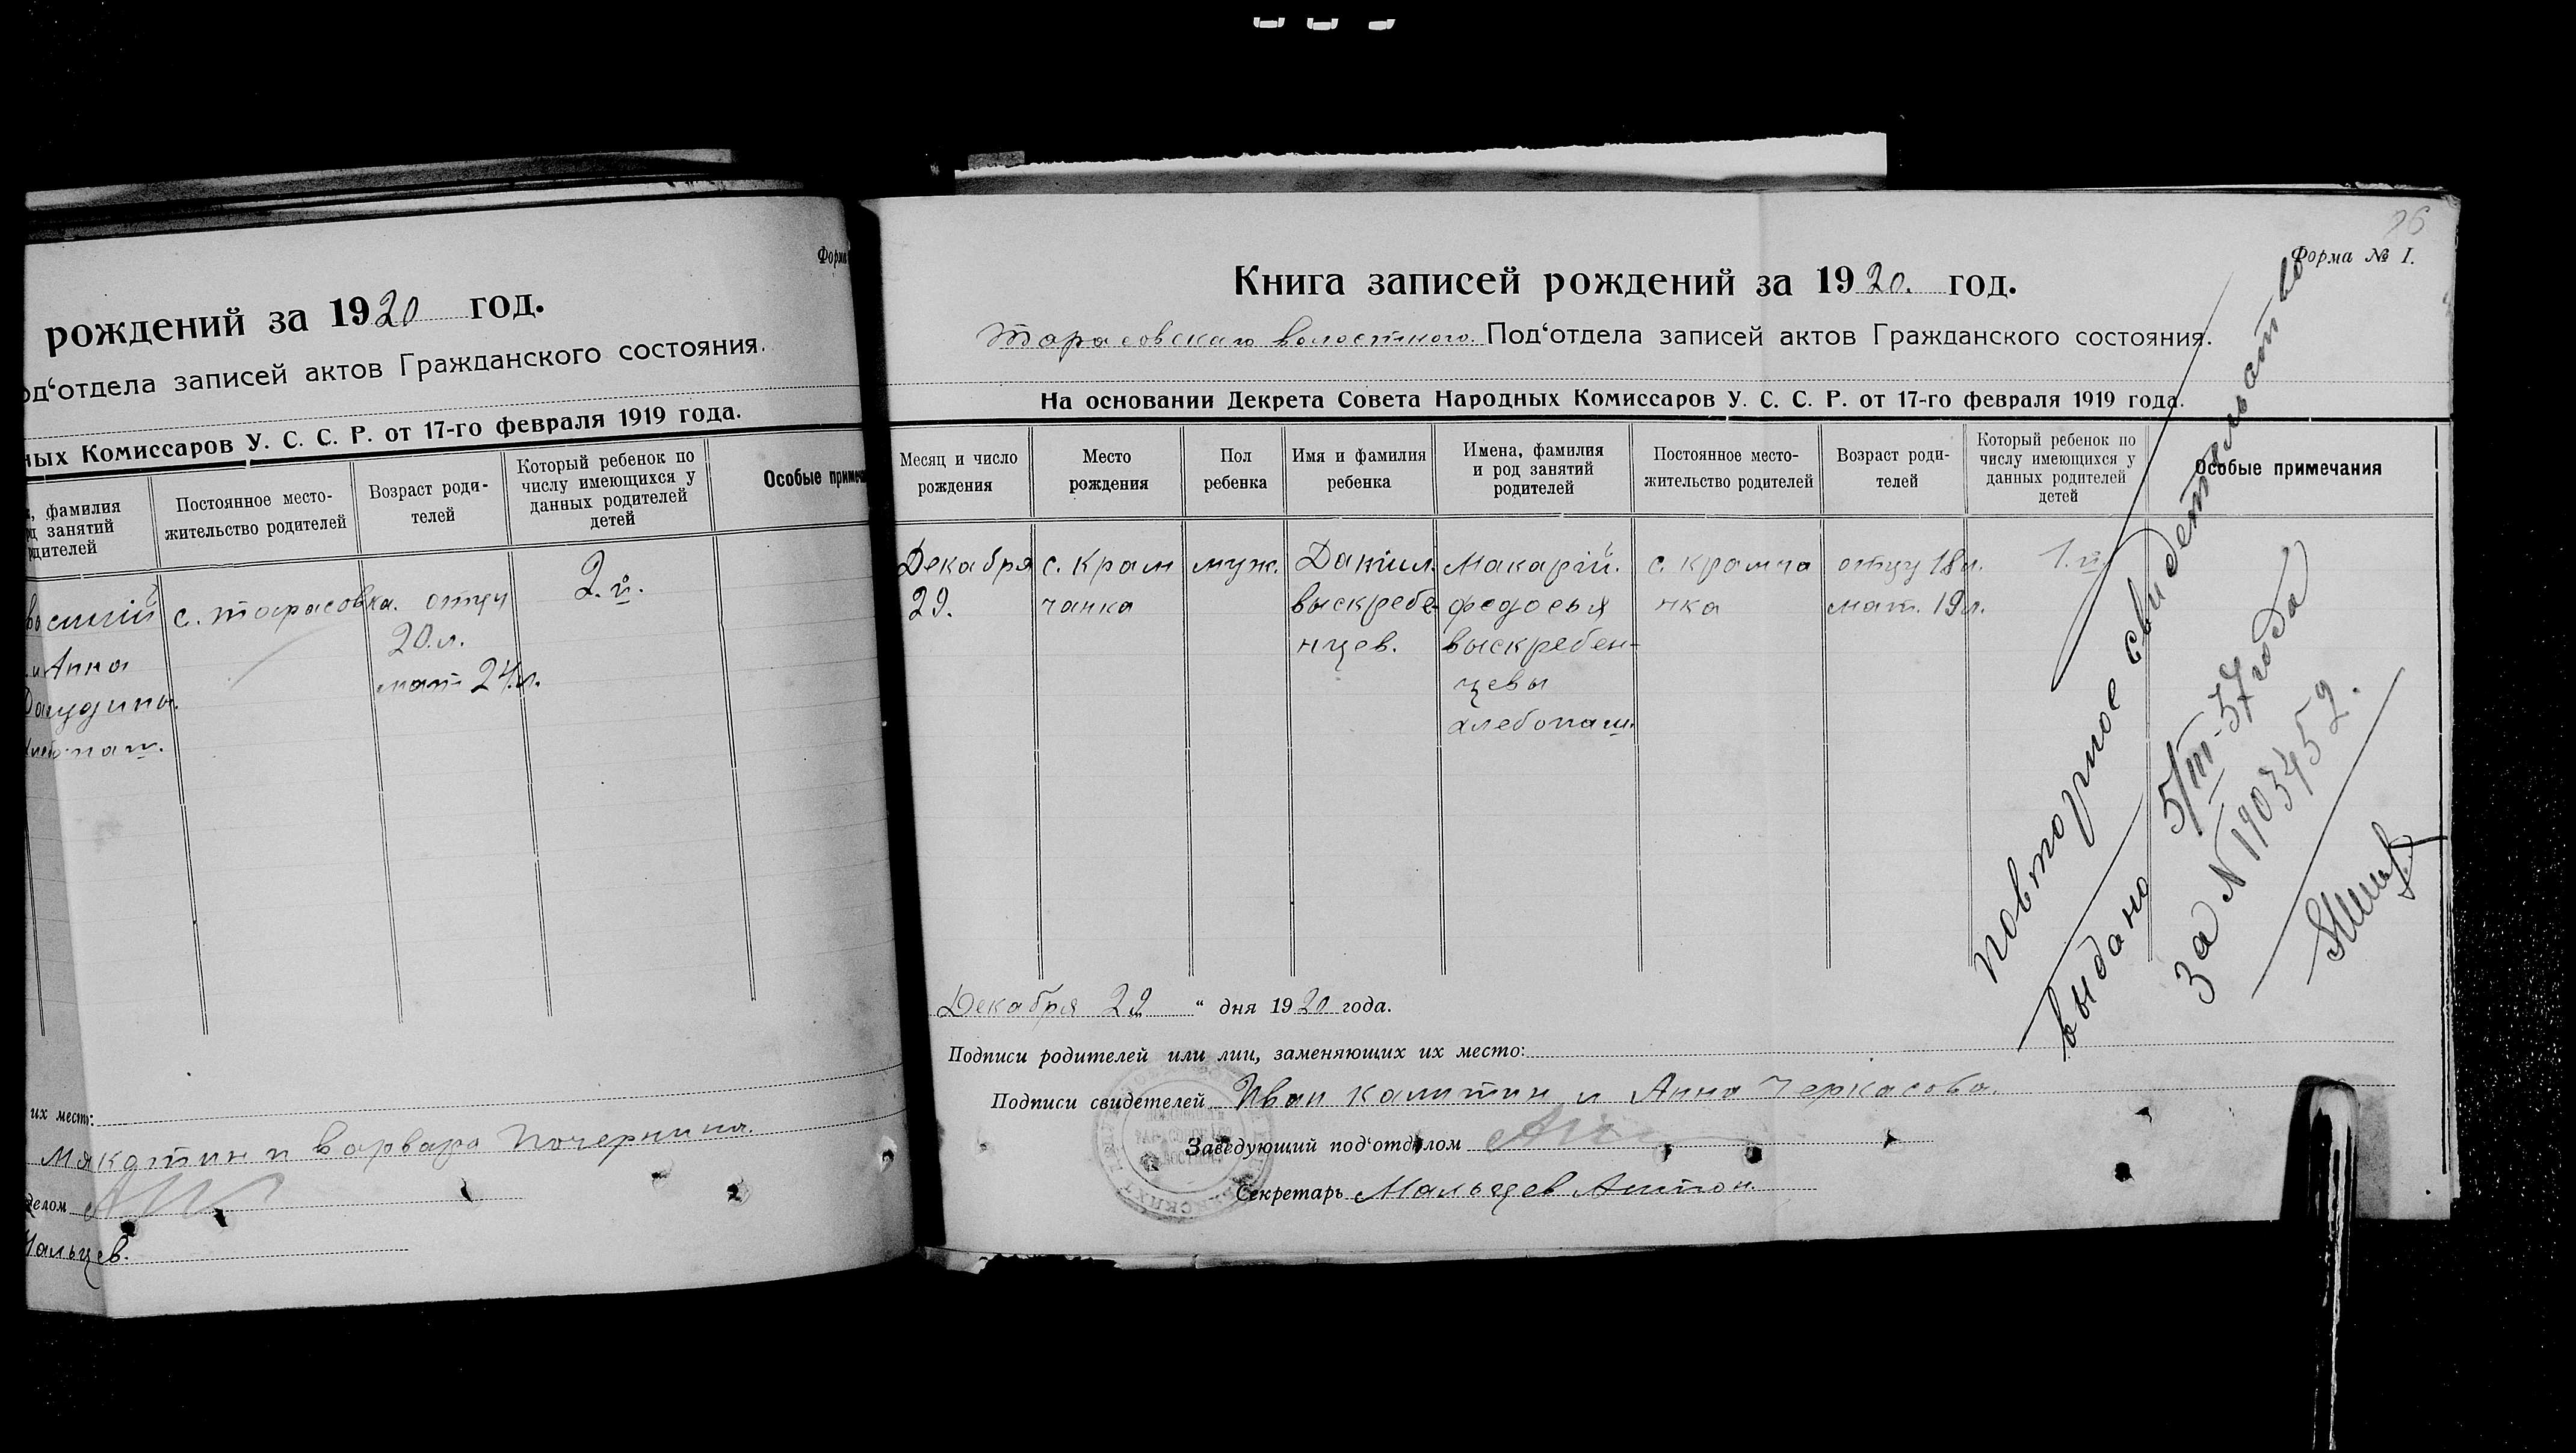 рождений за 1920 год.
од‘отдела записей актов Гражданского состояния.
ных Комиссаров У. С. С. Р. от 17-го февраля 1919 года.
фамилия
занятий
одителей
Постоянное место-
жительство родителей
Возраст роди-
телей
Который ребенок по
числу имеющихся у
данных родителей
детей
Особые
с. тарасовка.
отцу
20.л.
мат 24.л.
2.й.
и Анна
их место:
Мякотин и варвара
делом
Мальцев.
26
Форма № 1.
Книга записей рождений за 1920. год.
Тарасовскаго волостного. Под‘отдела записей актов Гражданского состояния.
На основании Декрета Совета Народных Комиссаров У. С. С. Р. от 17-го февраля 1919 года.
Месяц и число
рождения
Место
рождения
Пол
ребенка
Имя и фамилия
ребенка
Имена, фамилия
и род занятий
родителей
Постоянное место-
жительство родителей
Возраст роди-
телей
Который ребенок по
числу имеющихся у
данных родителей
детей
Особые примечания
Декабря
29.
с. Крам
чанка
муж.
Данiил.
выскребе-
нцев.
Макарiй.
федосья
выскребен-
цевы
хлебопаш.
с. крамча
нка
отцу 18л.
мат. 19л.
1.й.
повторное свидетельство
выдано 5/III-37 года
за N 1903452.
Декабря 22 “ дня 1920 года.
Подписи родителей или лиц, заменяющих их место:
Подписи свидетелей Иван Калитин и Анна Черкасова.
Заведующий под‘отделом
Секретарь Мальцев Антон.